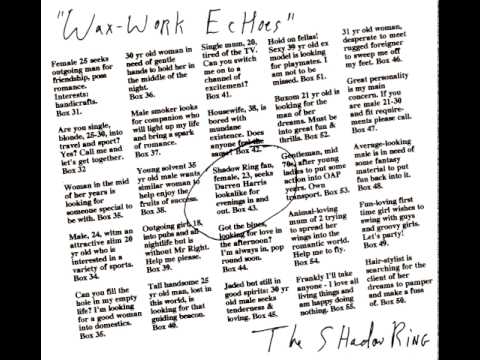 "Wax-Work Echoes"
Female 25 seeks
outgoing man for
friendship, poss
romance.
Interests:
handicrafts.
Box 31.
Are you single,
blonde, 25-30, into
travel and sport?
Yes? Call me and
let's get together.
Box 32
Woman in the mid
of her years is
looking for
someone special to
be with. Box
Male, 24, with an
attractive slim 20
yr old who is
interested in a
variety of sports.
Box 34.
Can you fill the
hole in my empty
life? I'm looking
for a good woman
into domestics.
Box 35.
30 yr old woman in
need of gentle
hands to hold her in
the middle of the
night.
Box 36.
Male smoker looks
for companion who
will light up my life
and bring a spark
of romance.
Box 37.
Young solvent 35
yr old male wants
similar woman to
help enjoy the
fruits of success.
Box 38.
Outgoing girl, 18,
into pubs and
nightlife but is
without Mr Right.
Help me please.
Box 39.
Tall handsome 25
yr old man, lost in
this world, is
looking for that
guiding beacon.
Box 40.
Single mum, 20,
tired of the TV.
Can you switch
me on to a
channel of
excitement?
Box 41.
Housewife, 38, is
bored with
mundane
existence. Does
anyone feel the
same? Box 42.
Shadow Ring fan,
female, 23, seeks
Darren Harris
lookalike for
evenings in and
out. Box 43.
Got the blues,
looking for love in
the afternoon?
I'm always in, pop
round soon.
Box 44.
Jaded but still in
good spirits: 30 yr
old male seeks
tenderness &
loving. Box 45.
Hold on fellas!
Sexy 39 yr old ex
model is looking
for playmates. I
am not to be
missed. Box 51.
Buxom 21 yr old is
looking for the
man of her
dreams. Must be
into great fun &
thrills. Box 52.
Gentleman, mid
70s, after young
ladies to put some
action into OAP
years. Own
transport. Box 53.
Animal-loving
mum of 2 trying
to spread her
wings into the
romantic world.
Help me to fly.
Box 54.
Frankly I'll take
anyone - I love all
living things and
am happy doing
nothing. Box 55.
31 yr old woman,
desperate to meet
rugged foreigner
to sweep me off
my feet. Box 46.
Great personality
is my main
concern. If you
are male 21-30
and fit require-
ments please call.
Box 47.
Average-looking
male is in need of
some fantasy
material to put
fun back into it.
Box 48.
Fun-loving first
time girl wishes to
swing with guys
and groovy girls.
Let's party!
Box 49.
Hair-stylist is
searching for the
client of her
dreams to pamper
and make a fuss
of. Box 50.
The Shadow Ring